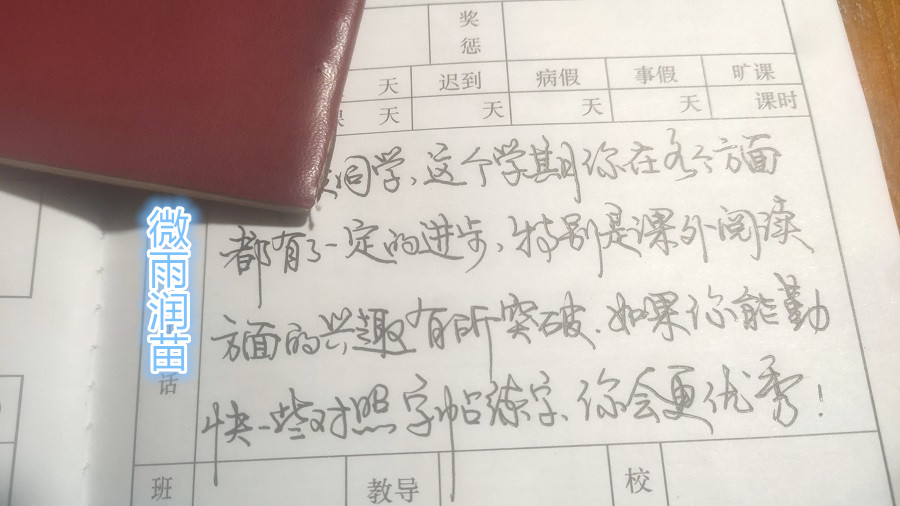 奖惩
天 迟到 病假 事假 旷课
天 天 天 天 课时
同学，这个学期你在各个方面
都有了一定的进步，特别是课外阅读
方面的兴趣有所突破。如果你能勤
快一些对照字帖练字，你会更优秀！
微雨润苗
话
班 教导 校